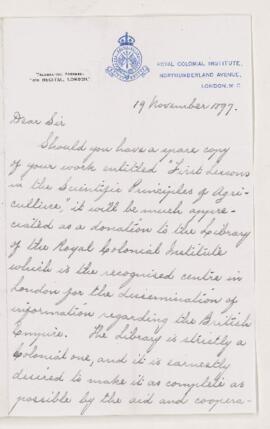 ROYAL COLONIAL INSTITUTE,
NORTHUMBERLAND AVENUE,
LONDON, W.C.
19 November 1897.
Dear Sir
Should you have a spare copy
of your work entitled "First Lessons
in the Scientific Principles of Agri-
culture," it will be much appre-
ciated as a donation to the Library
of the Royal Colonial Institute
which is the recognised centre in
London for the dissemination of
information regarding the British
Empire. The Library is strictly a
Colonial one, and it is earnestly
desired to make it as complete as
possible by the aid and coopera-